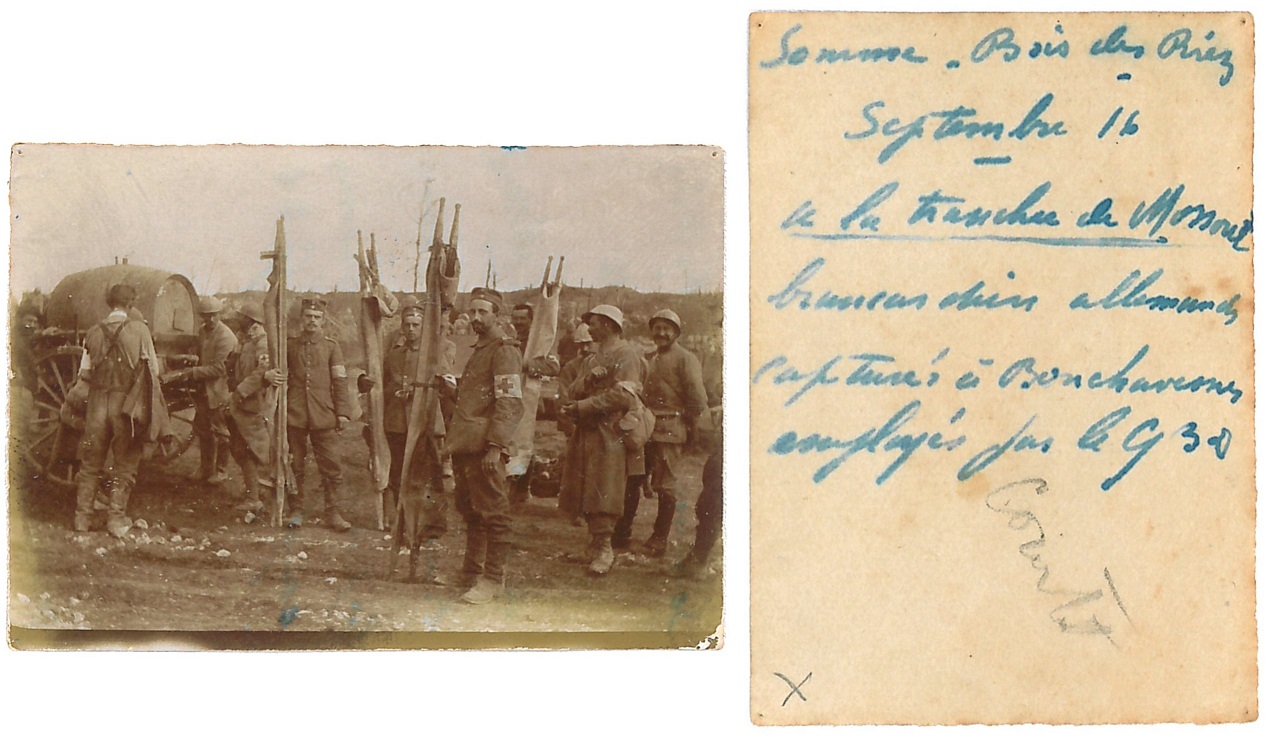 Somme - Bois des Riez
Septembre 16
a la tranchée de Mossoul
brancardiers allemands
capturés à Bouchavesnes
employés par le G
X